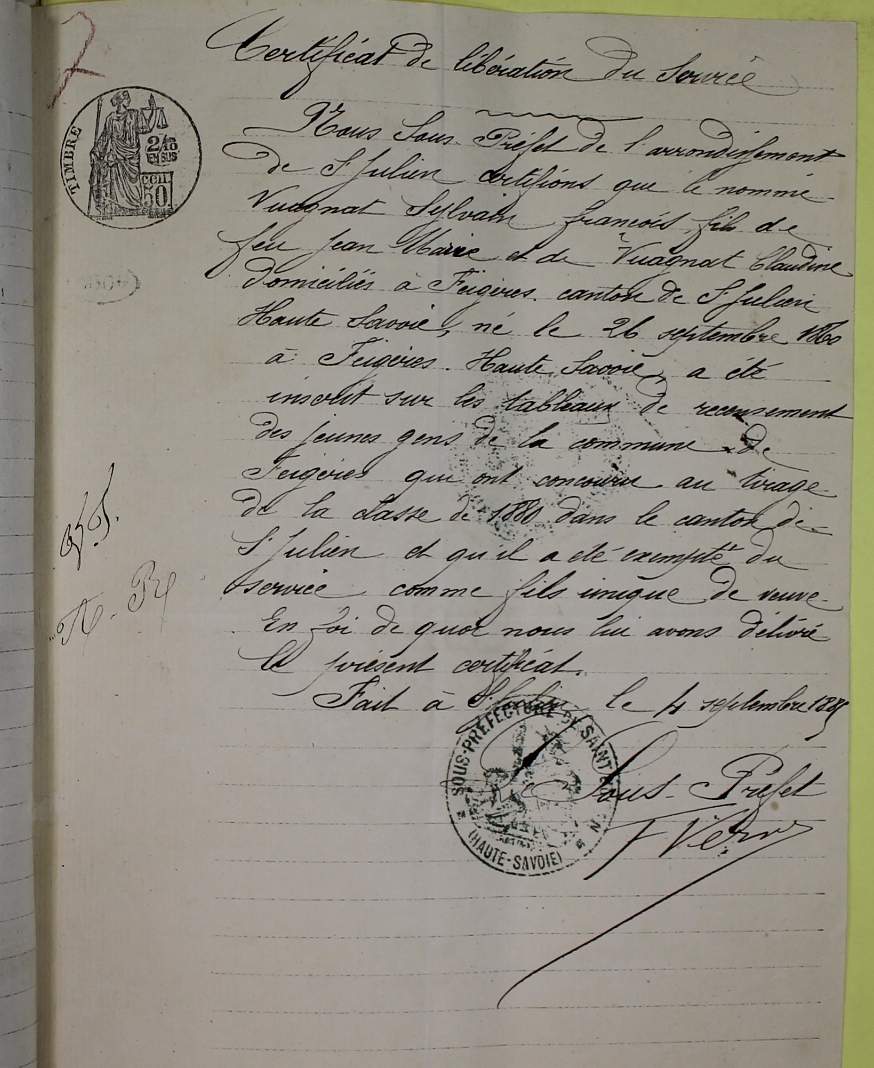 7
Certificat de libération du Service
TIMBRE
2/10
EN SUS
50
Nous Sous-Préfet de l'arrondissement
de St Julien certifions que le nommé
Vuagnat Sylvain françois, fils de
feu Jean Marie et de Vuagnat Claudine
domiciliés à Feigères. canton de St Julien
Haute Savoie, né le 26 septembre 1860
à Feigères. Haute Savoie, a été
inscrit sur les tableaux de recensement
des jeunes gens de la commune de
Feigères qui ont concouru au tirage
de la classe de 1880 dans le canton de
St Julien et qu'il a été exempté du
service comme fils unique de veuve.
En foi de quoi nous lui avons délivré
le présent certificat.
Fait à St Julien le 4 septembre 1885
Sous-Préfet
SOUS-PRÉFECTURE DE SAINT
(HAUTE-SAVOIE)